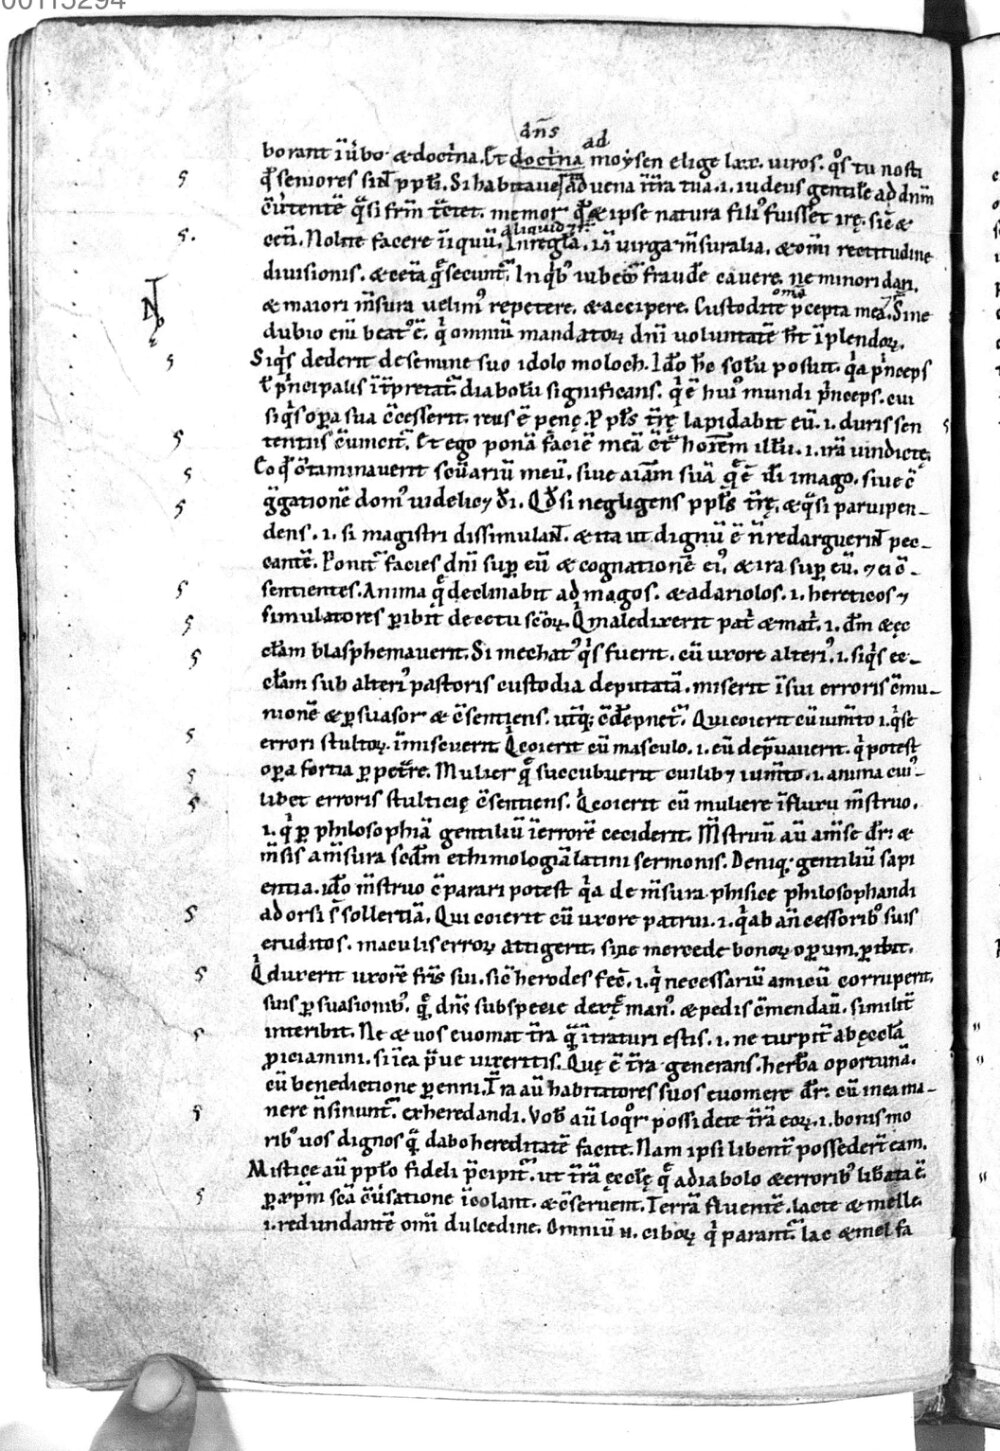 00115294
dn̄s ad
borant ī u̍bo· & doct̍na. Et doct̍na moẏsen elige lxx. uiros. q̊s tu nosti
q̄ seniores sint ppt̍i. Si habitaue aduena īt̄ra tua .i. iudeus gentilē ad dn̄m
aliquid
diuisionis. & cet̄a q̄ secunt̄. In q̍b; iubem̄ fraudē cauere. ne minori dari.
om̄a
& maiori m̄sura uelim; repetere. & accipere. Custodite p̄cepta mea. Sine
dubio eni̅ beat; ē. q̍ omniū mandatoꝝ dn̄i uoluntatē hr̄t īplendoꝝ.
Siq̍s dederit de semine suo idolo moloch. Ido̅ hō solū posuit. q̍a p̍nceps
ł p̍ncipalis īt̄pretat̄ diabolū significans. q̍ ē hui; mundi p̍nceps. cui
si q̍s op̲a sua c̄cesserit. reus ē penę. P ppl̄s t̄rę lapidabit eū .i. duris sen
tentiis c̄uincit̄. Et ego ponā faciē meā c̄t̄ hoīem illū .i. irā uindictę.
Eo q̍ c̄taminauerit sc̄uariū meū. siue aīam suā q̄ ē dī imago. siue c̄
g̍gationē dom; uidelic& dī. Qd̄ si negligens ppl̄s t̄rę. & q̄si paruipen-
dens .i. si magistri dissimulant. & ita ut dignū ē n̄ redarguerint pec-
cantē. Ponit̄ facies dn̄i sup̲ eū & cognationē ei;. & ira sup̲ eū. ⁊ ei c̄-
sentientes. Anima q̄ declinabit ad magos. & ad ariolos .i. hereticos ⁊
simulatores p̲ibit de cetu sc̄oꝝ. Q̍ maledixerit pat̍ & mat̍ .i. dm̄ & ęc
cl̄am blasphemauerit. Si mechat; q̍s fuerit. cū uxore alteri; .i. siq̍s ec-
cl̄am sub alteri; pastoris custodia deputatā. miserit ī sui erroris c̄mu-
nionē & p̲suasor & c̄sentiens. ut̍q; c̄dēpnet̄. Qui coierit cū iumto .i. q̍ se
errori stultoꝝ. īmiscuerit. Q̍ coierit cū masculo .i. eū dep̍uauerit. q̍ potest
op̲a fortia p̲petrare. Mulier q̄ succubuerit cuilib& iumto .i. anima cui;-
libet erroris stulticię c̄sentiens. Q̍ coierit cū muliere ī fluxu m̄struo.
.i. q̍ p̲ philosophiā gentiliū ī errorē ceciderit. M̄struū aū a m̄se dr̄: &
m̄sis a m̄sura scdm̄ ethimologiā latini sermonis. Deniq; gentiliū sapi
entia. ido̅ m̄struo c̄parari potest q̍a de m̄sura phisice philosophandi
adorsi s̄ sollertiā. Qui coierit cū uxore patrui .i. q̍ ab an̄cessorib; suis
eruditos. maculis erroꝝ attigerit. sine mercede bonoꝝ op̲um. p̲ibit.
Q̍ duxerit uxorē fr̄is sui. sic̄ herodes fec̄ .i. q̍ necessariū amicū corruperit.
suis p̲suasionib;. q̄ dn̄s sub specie dext̄ę man;. & pedis c̄mendau̍. similit̄
interibit. Ne & uos euomat t̄ra q̄ ītraturi estis .i. ne turpit̄ ab ęccl̄a
p̍iciamini. si īea p̄ue uixeritis. Quę ē t̄ra generans. herbā oportunā.
cū benedictione p̲enni. T̄ra aū habitatores suos euomere dr̄: cū in ea ma-
nere n̄ sinunt̄. exheredandi. Vob̄ aū loq̍r possidete t̄rā eoꝝ .i. bonis mo
rib; uos dignos q̍ dabo hereditatē facite. Nam ipsi libent̄ possedert̄ eam.
Mistice aū pplo̅ fideli p̄cipit̄. ut t̄rā ęccl̄ę q̄ a diabolo & errorib; lib̄ata ē
p̲ xp̄m sc̄a c̄u̍satione īcolant. & c̄seruent. Terrā fluentē. lacte & melle.
.i. redundantē om̄i dulcedine. Omniū n. ciboꝝ q̍ parant̄. lac & mel fa